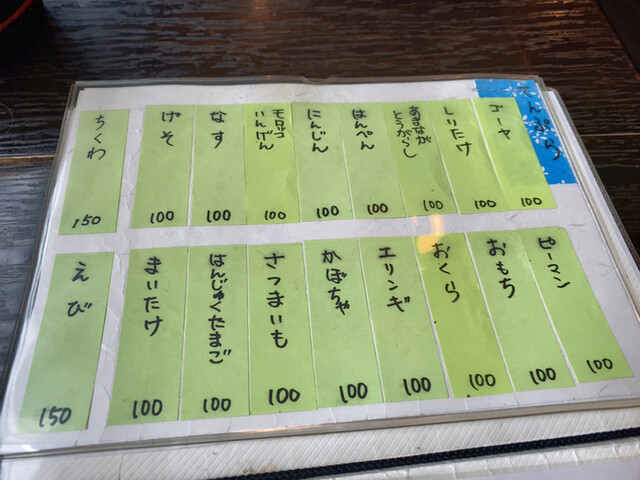 てんぷら
ゴーヤ
100
しいたけ
100
あまなが
とうがらし
100
はんぺん
100
にんじん
100
モロッコ
いんげん
100
なす
100
げそ
100
ちくわ
150
ピーマン
100
おもち
100
おくら
100
エリンギ
100
かぼちゃ
100
さつまいも
100
はんじゅくたまご
100
まいたけ
100
えび
150